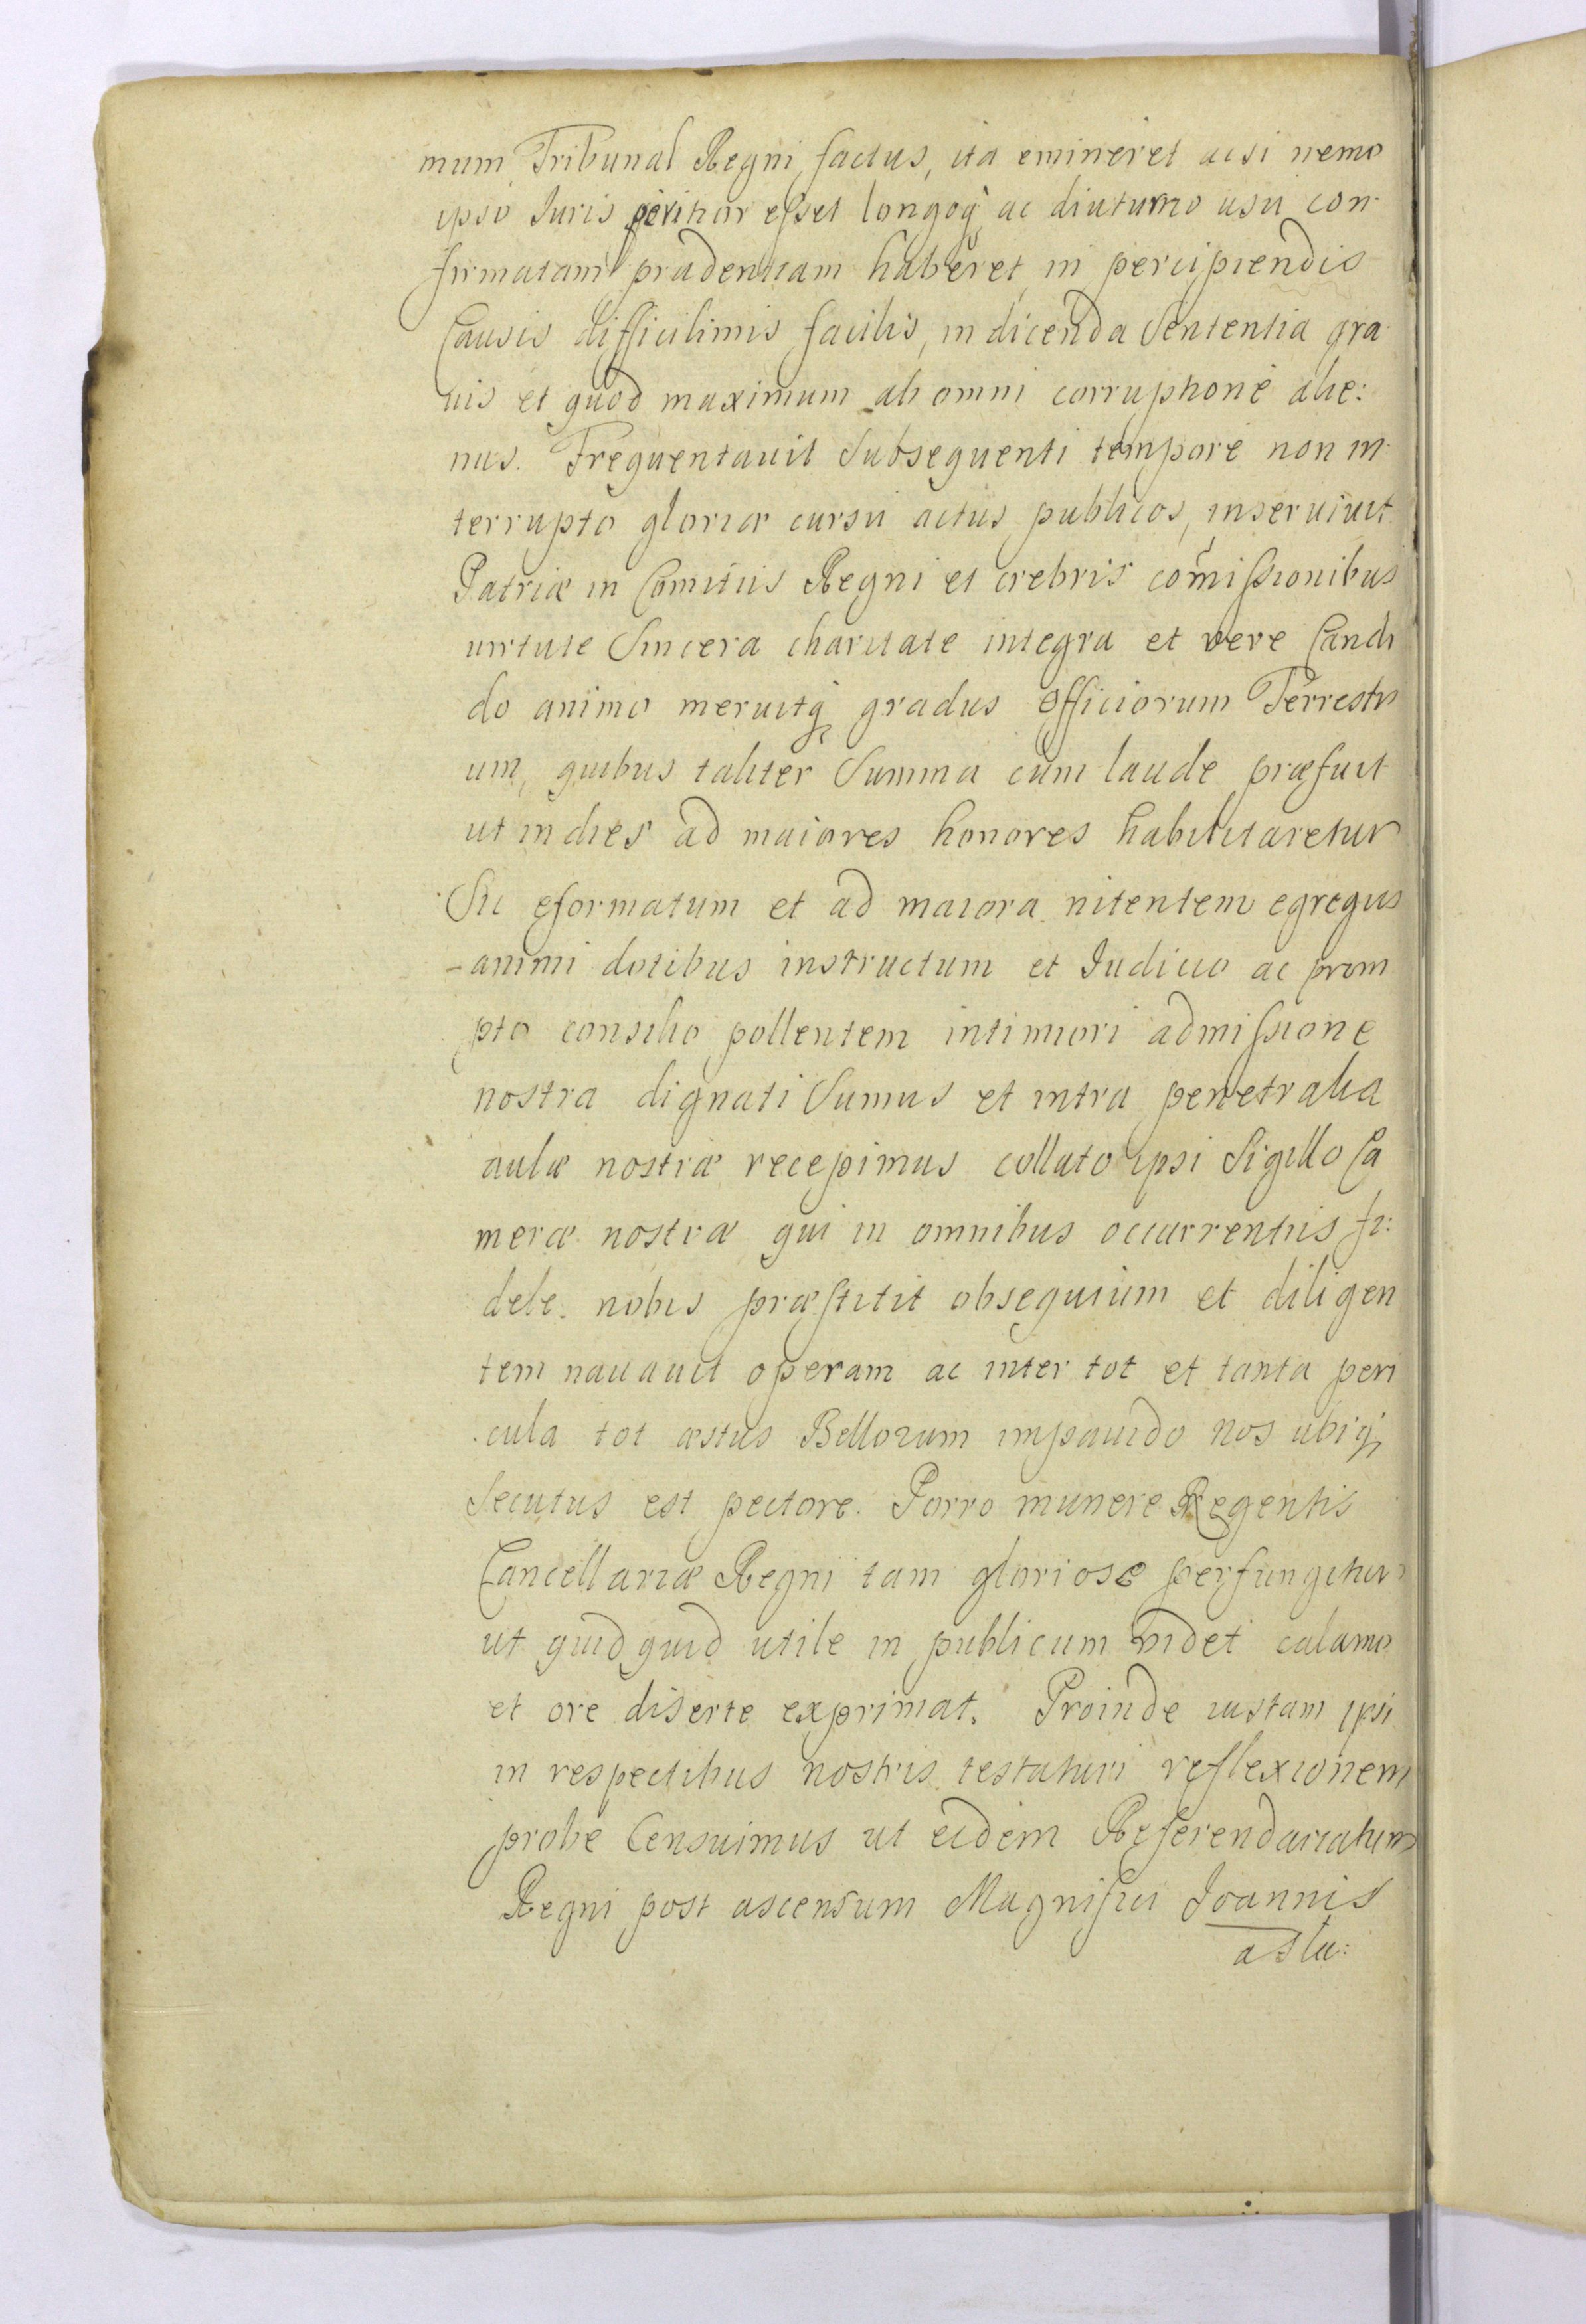 mum Tribunal Regni factus, ita emineret acsi nemo
ipso Iuris peritior eſset longoq́ ac diuturno usu con-
firmatam prudentiam haberet in percipiendis
Causis difficilimis facilis, in dicenda Sententia gra-
uis et quod maximum ab omni corruptione alie:
nus. Frequentauit Subsequenti tempore non in-
terrupto gloriæ cursu actus publicos, inseruiuit
Patriæ in Comitiis Regni et crebris com̃iſsionibus
uirtute Sincera charitate integra et vere Candi
do animo meruitq́ gradus Officiorum Terrestri
um, quibus taliter Summa cum laude præfuit
ut in dies ad maiores honores habilitaretur
Sic eformatum et ad maiora nitentem egregiis
animi dotibus instructum et Iudicio ac prom
pto consilio pollentem intimiori admiſsione
nostra dignati Sumus et intra penetralia
aulæ nostræ recepimus collato ipsi Sigillo Ca
meræ nostræ qui in omnibus occurrentiis fi:
dele nobis præſtitit obsequium et diligen
tem nauauit operam ac inter tot et tanta peri
cula tot æstus Bellorum impauido nos ubiq́
Secutus est pectore. Porro munere Regentis
Cancellariæ Regni tam gloriose perfungitur
ut quidquid utile in publicum videt calamo
et ore diserte exprimat. Proinde iustam ipsi
in respectibus nostris testaturi reflexionem
probe Censuimus ut eidem Referendariatum
Regni post ascensum Magnifici Ioannis
a Slu: